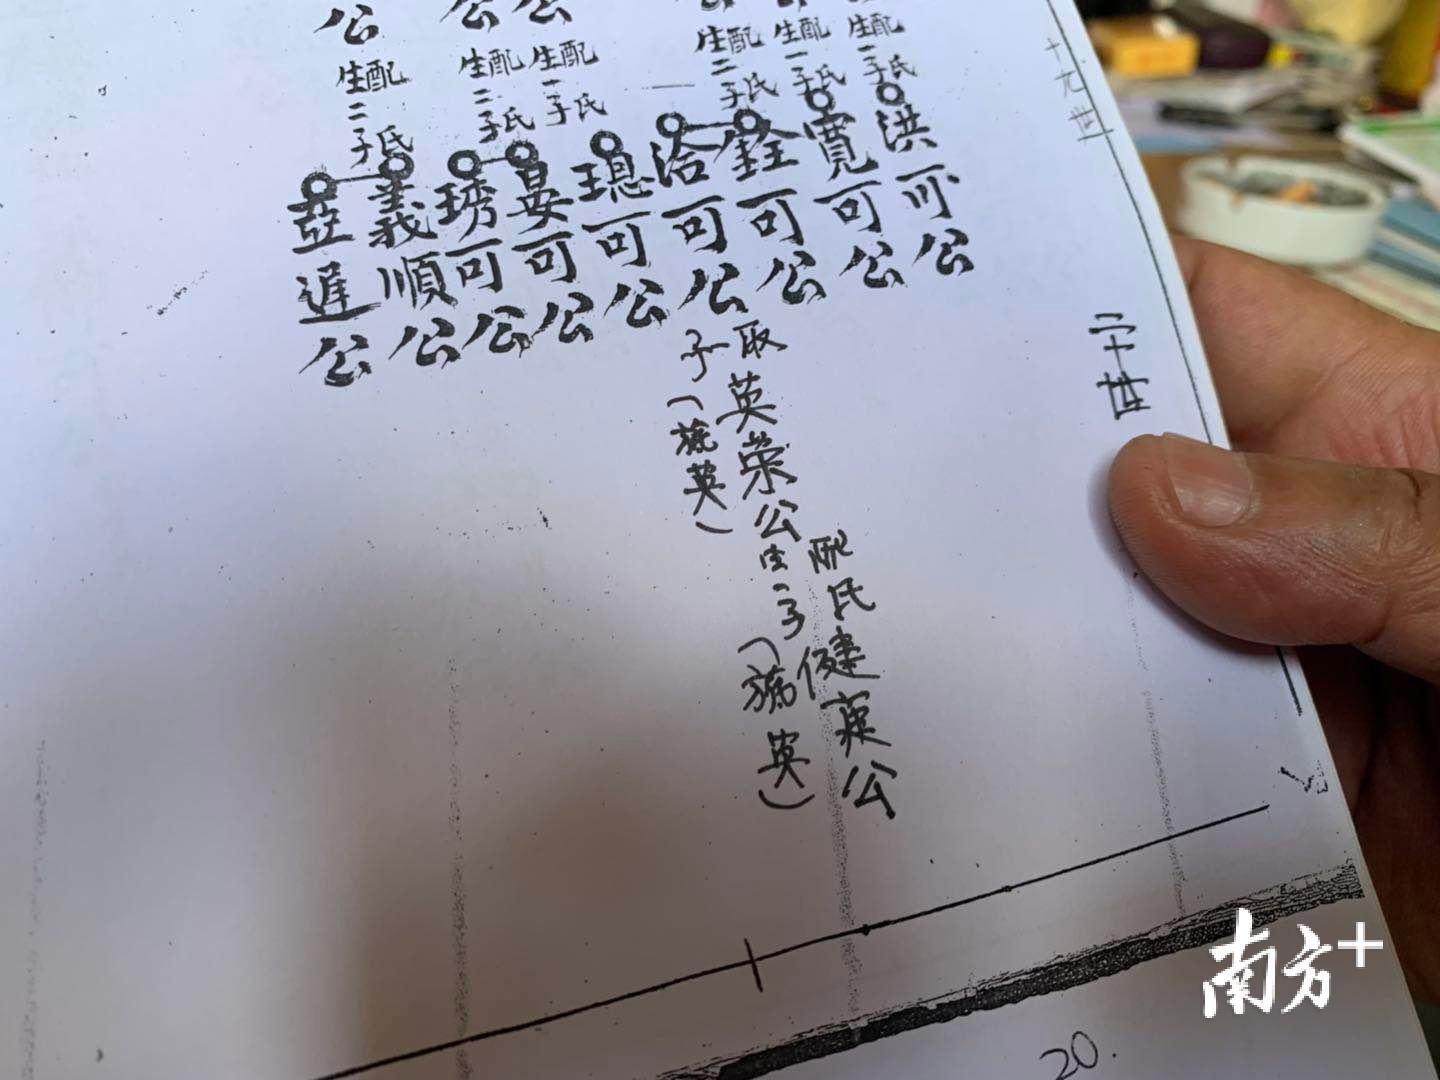 十九世
二十世
配氏
生一子
洪可公
配氏
生一子
寬可公
配氏
生二子
銓可公
洽可公
璁可公
配氏
生一子
晏可公
配氏
生二子
琇可公
配氏
生二子
義順公
遲公
公
公
公
取英荣公
子(英)
配氏健英公
生一子
(英)
20.
南方+